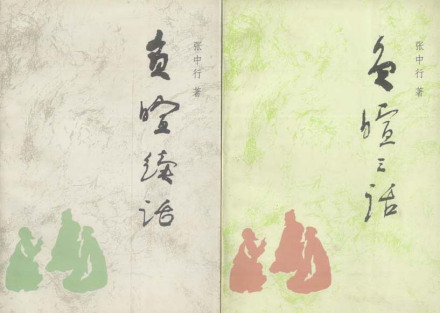 负暄续话
张中行 著
负暄三话
张中行 著